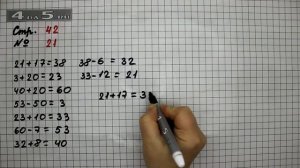 4 5
Стр. 42
№ 21
21+17=38
3+20=23
40+20=60
53-50=3
23+10=33
60-7=53
32+8=40
38-6=32
33-12=21
21+17=3